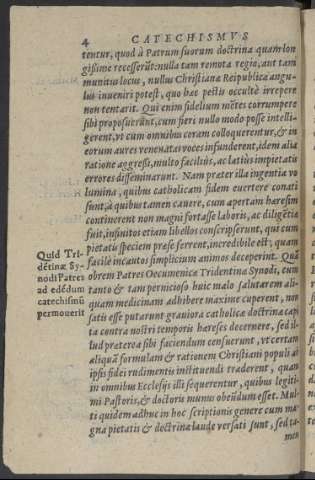 4
CATECHISMVS
tentur, quod à Patrum suorum doctrina quam lon
gissime recesserūt: nulla tam remota regio, aut tam
munitus locus, nullus Christianæ Reipublicæ angu-
lus inveniri potest, quo hæc pestis occultè irrepere
non tentarit. Qui enim fidelium mētes corrumpere
sibi proposuerūnt, cum fieri nullo modo posse intelli-
gerent, vt cùm omnibus coram colloquerentur, & in
eorum aures venenatas voces infunderent, idem alia
ratione aggressi, multo faciliùs, ac latiùs impietatis
errores disseminarunt. Nam præter illa ingentia vo
lumina, quibus catholicam fidem evertere conati
sunt, à quibus tamen cavere, cum apertam hæresim
continerent non magni fortasse laboris, ac diligētiæ
fuit, infinitos etiam libellos conscripserunt, qui cum
pietatis speciem præ se ferrent, incredibile est, quam
facile incautos simplicium animos deceperint. Quā
obrem Patres Oecumenica Tridentina Synodi, cum
tanto & tam pernicioso huic malo salutarem ali-
quam medicinam adhibere maximè cuperent, non
satis esse putarunt graviora catholicæ doctrinæ capi
ta contra nostri temporis hæreses decernere, sed il-
lud præterea sibi faciendum censuerunt, vt certam
aliquā formulam & rationem Christiani populi ab
ipsis fidei rudimentis instituendi traderent, quam
in omnibus Ecclesijs illi sequerentur, quibus legiti-
mi Pastoris, & doctoris munus obeūdum esset. Mul-
ti quidem adhuc in hoc scriptionis genere cum ma-
gna pietatis & doctrinæ laude versati sunt, sed ta-
men
Quid Tri-
dētinæ Sy-
nodi Patres
ad edēdum
catechismū
permoverit